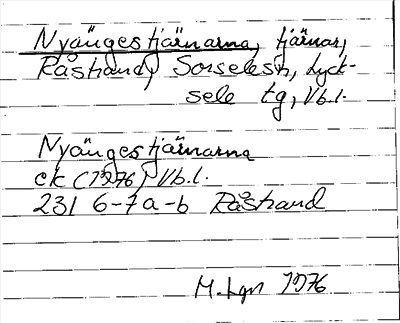 Nyängestjärnarna, tjärnar,
Råstrand, Sorselesn, Lyck-
sele tg, Vb.l.
Nyängestjärnarna
ek (1976) Vb.l.
231 6-7a-b Råstrand
M. Lgn 1976